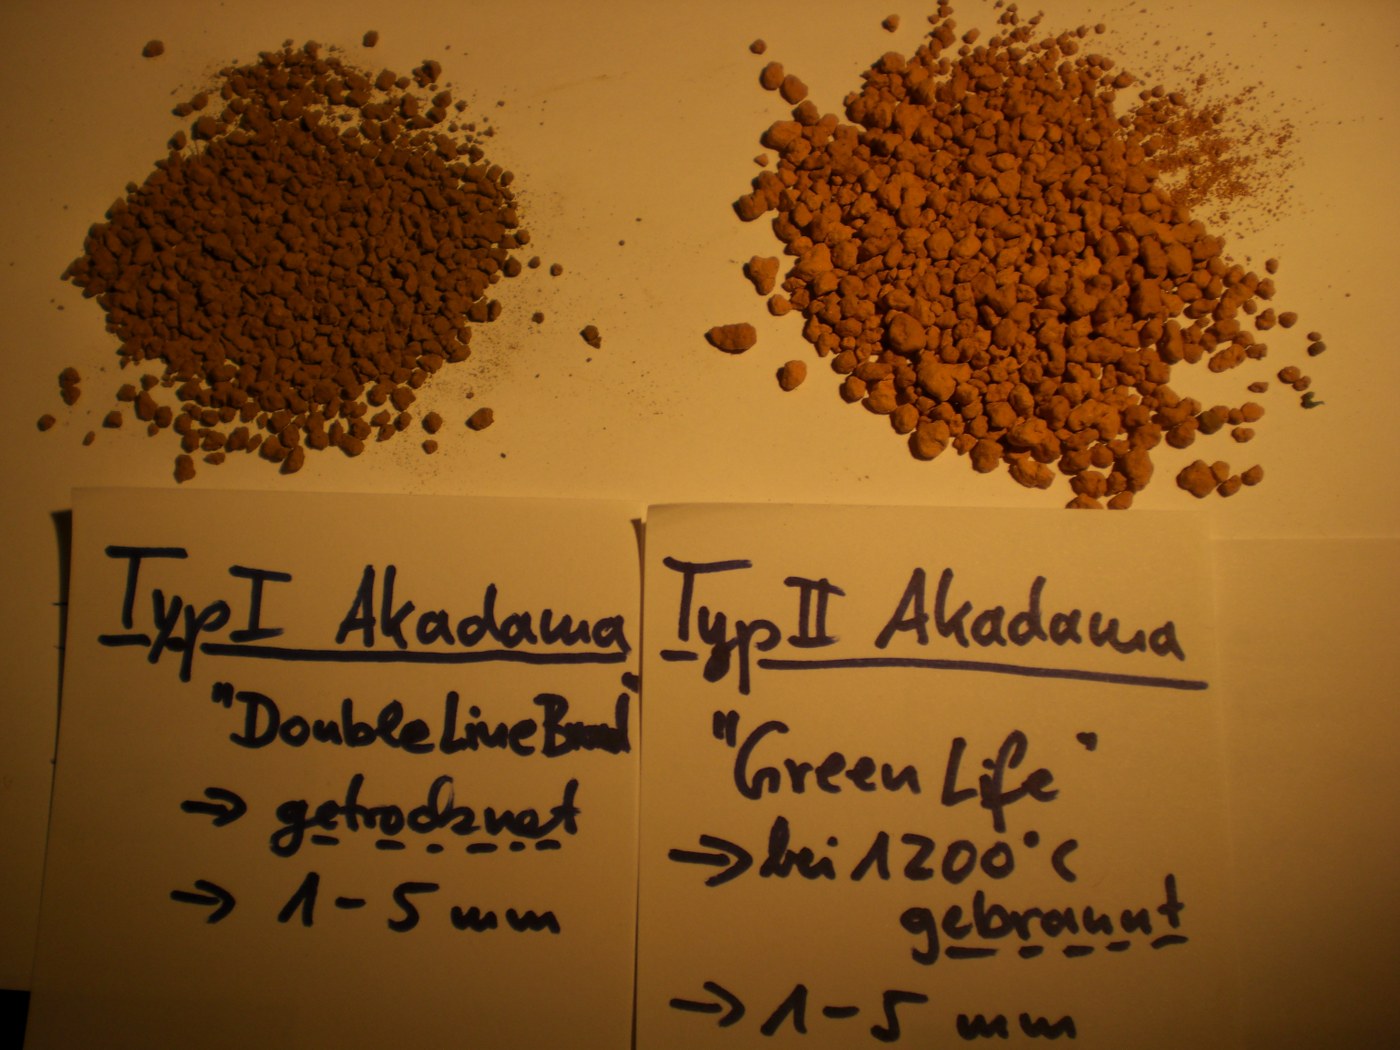 Typ I Akadama
"Double Line Brand"
→ getrocknet
→ 1 - 5 mm
Typ II Akadama
"Green Life"
→ bei 1200°C
gebrannt
→ 1 - 5 mm